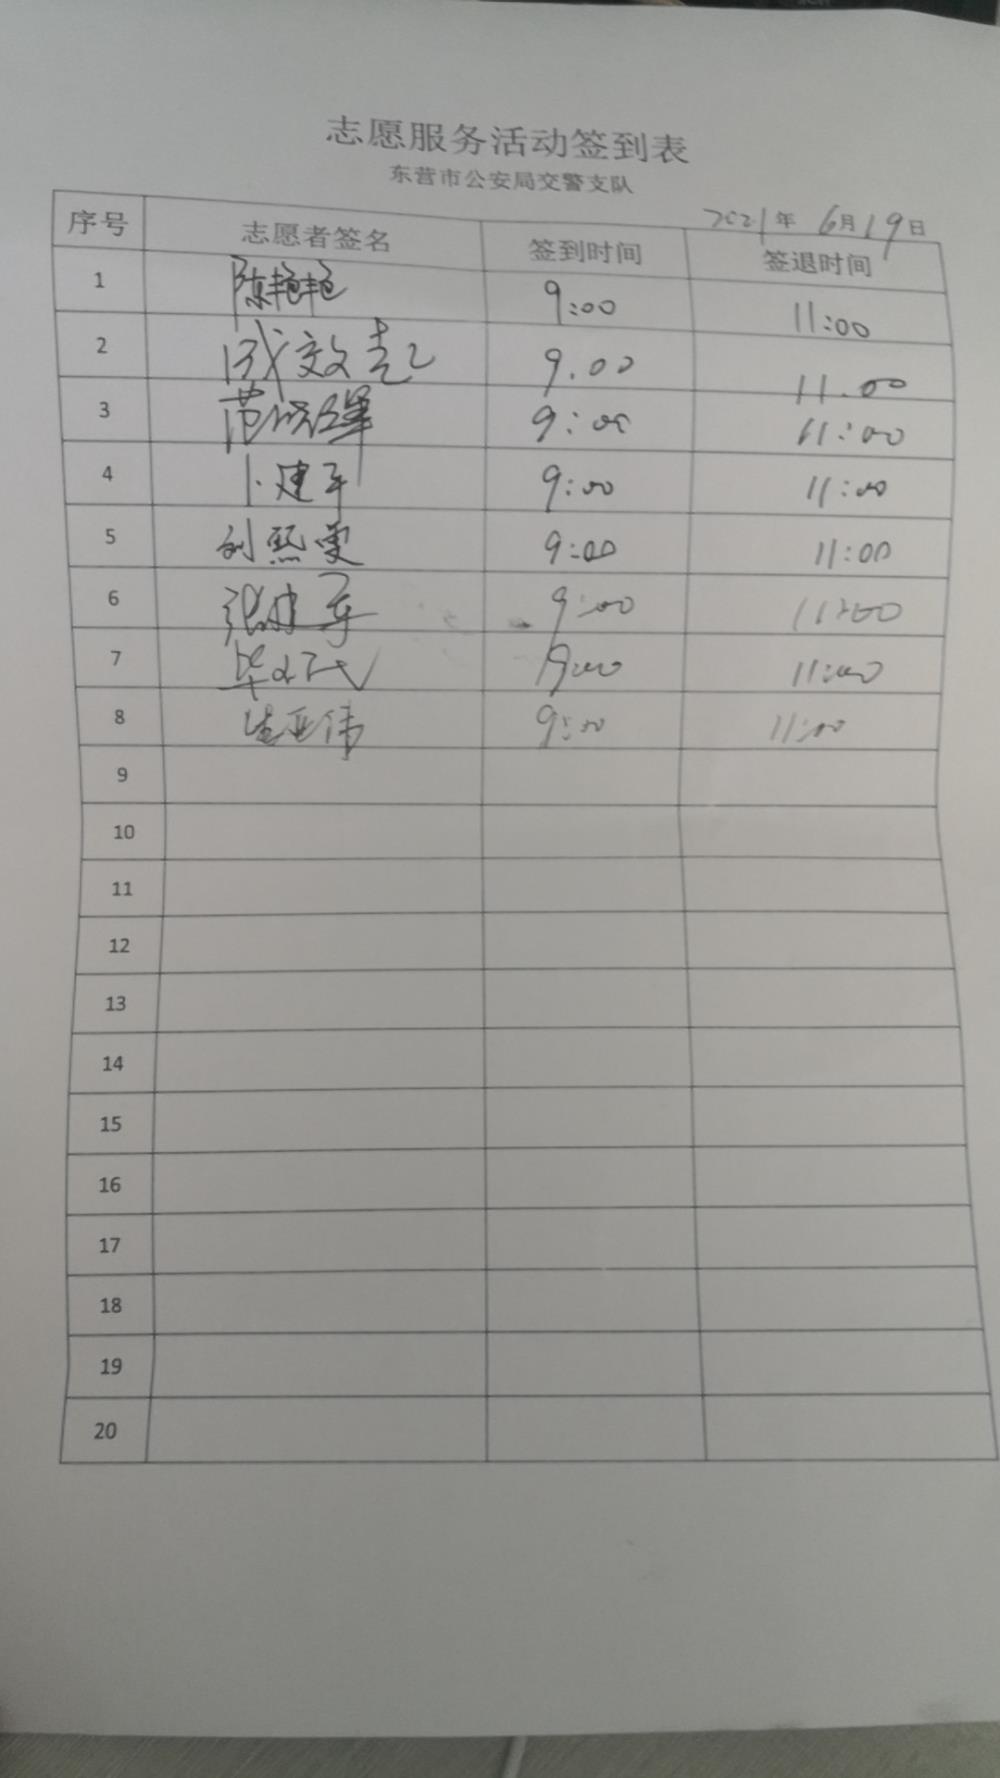 志愿服务活动签到表
东营市公安局交警支队
2021年 6月19日
序号 志愿者签名 签到时间 签退时间
1 陈艳艳 9:00 11:00
2 成效喜 9.00 11.00
3 范 9:00 11:00
4 卜建军 9:00 11:00
5 刘熙雯 9:00 11:00
6 张建军 9:00 11:00
7 毕 9:00 11:00
8 生亚伟 9:00 11:00
9
10
11
12
13
14
15
16
17
18
19
20